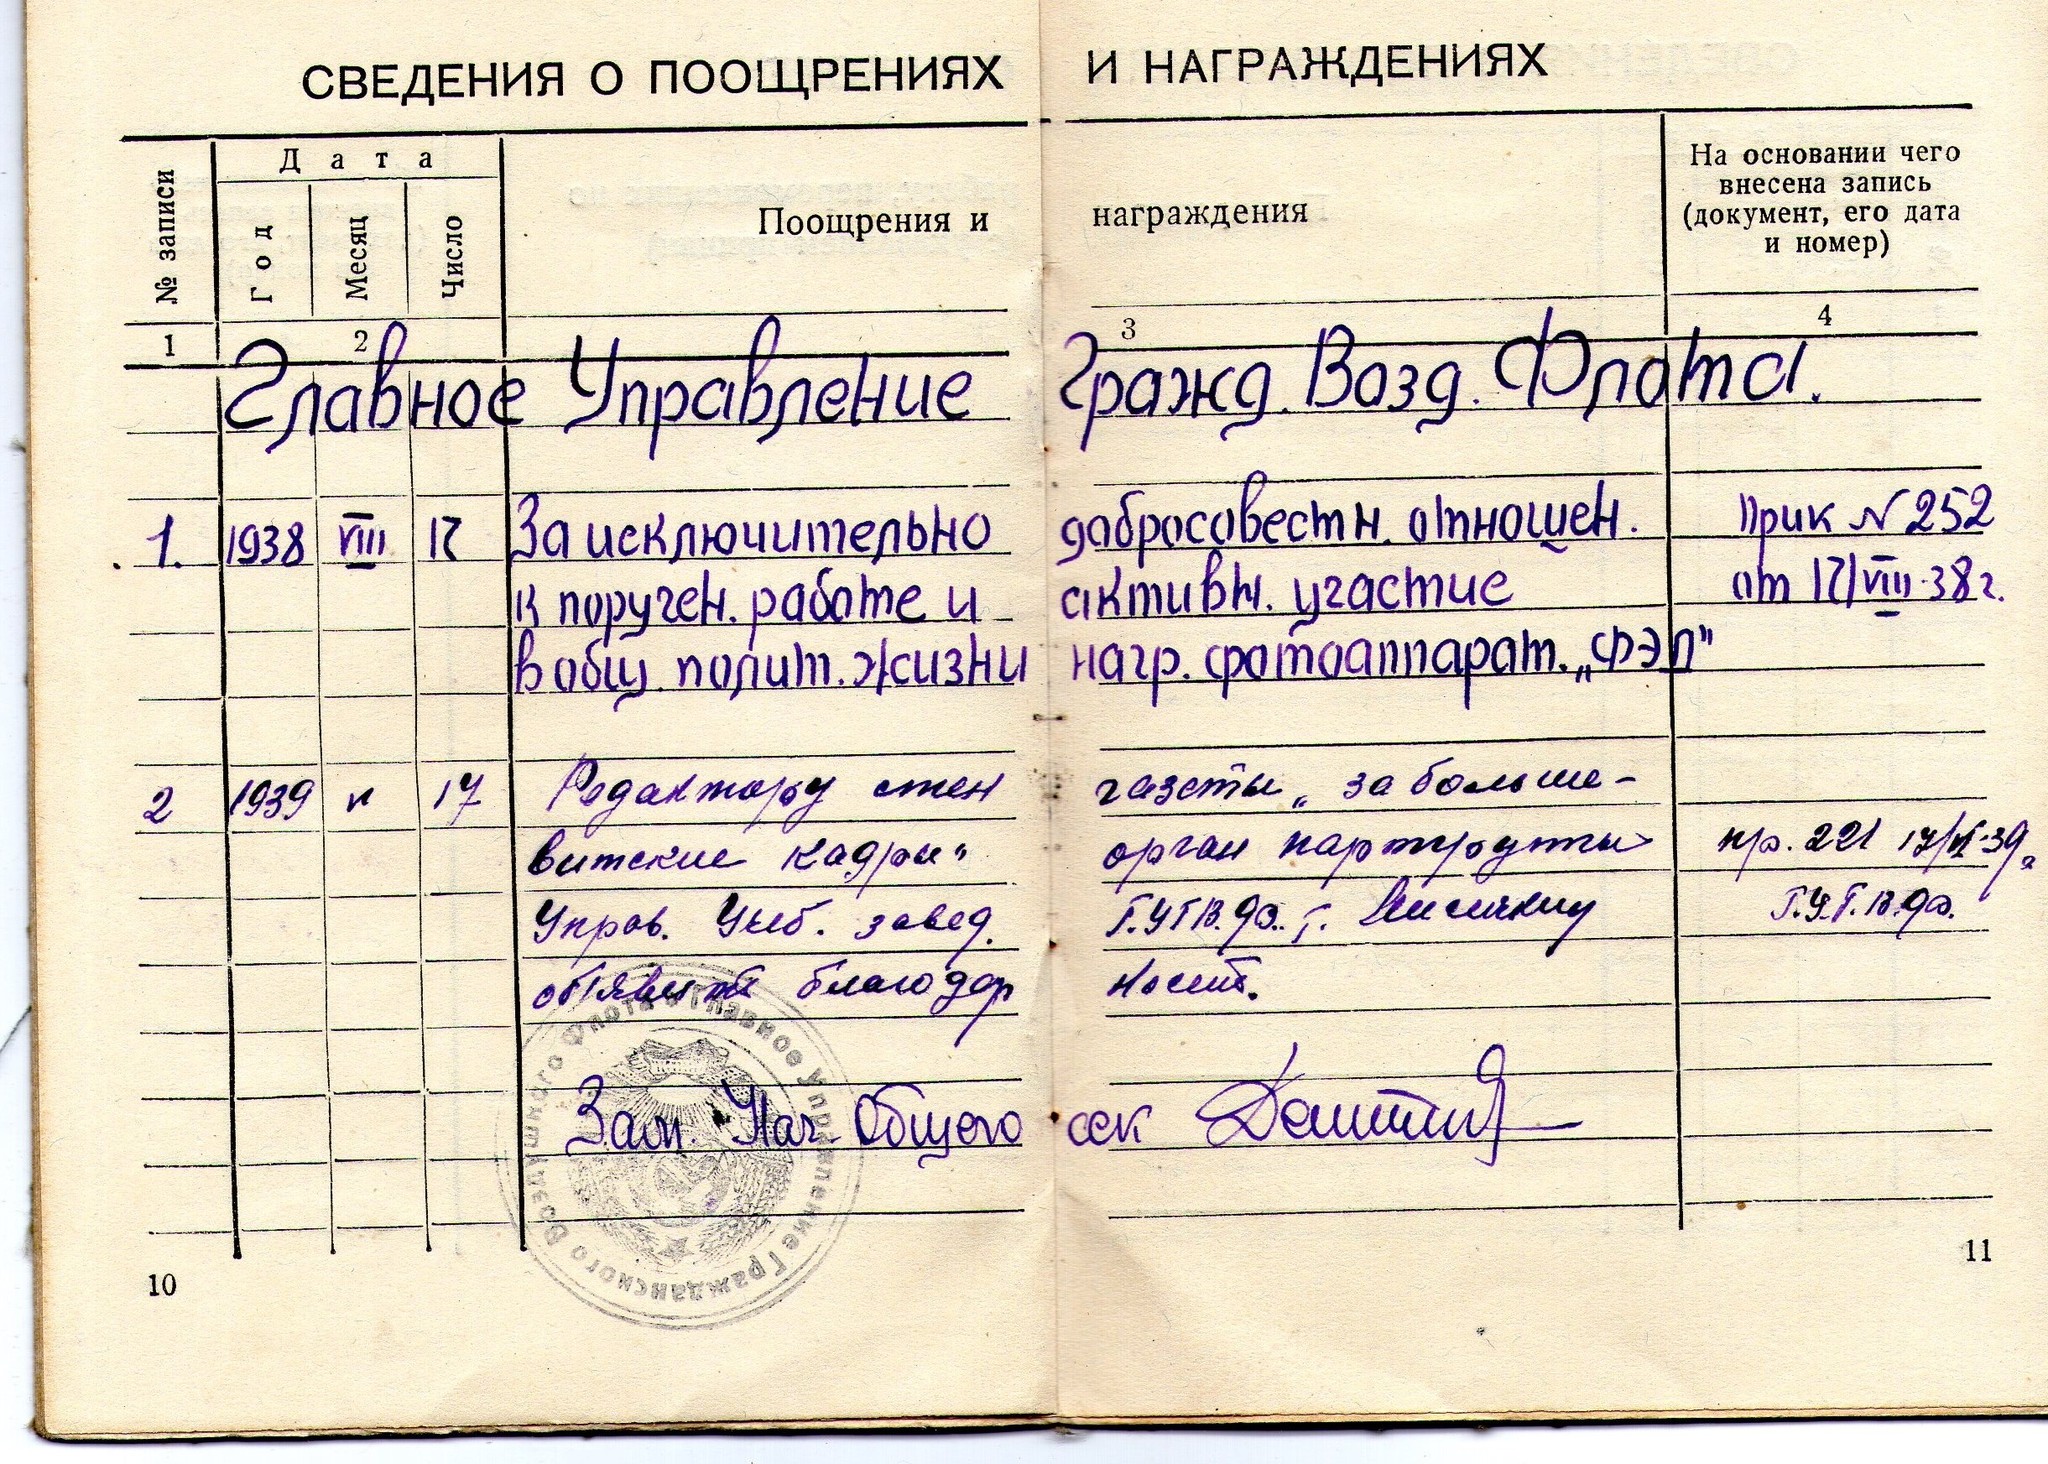 СВЕДЕНИЯ О ПООЩРЕНИЯХ И НАГРАЖДЕНИЯХ
№ записи
Дата
Год
Месяц
Число
Поощрения и награждения
На основании чего
внесена запись
(документ, его дата
и номер)
1 2 3 4
Главное Управление Гражд. Возд. Флота.
1. 1938 VIII 17 За исключительно добросовестн. отношен. Прик № 252
к поручен. работе и активн. участие от 17/VIII-38 г.
в общ. полит. жизни нагр. фотоаппарат. „ФЭД"
2 1939 17 Редактору стен газеты „за больше-
витские кадры" орган пр. 221 17/VI-39
Управ. Учеб. завед. Г.У.Г.В.Ф. т. Г.У.Г.В.Ф.
об'явить благодар ность.
Зам. Нач. Общего сек
Главное Управление Гражданского Воздушного Флота
10
11